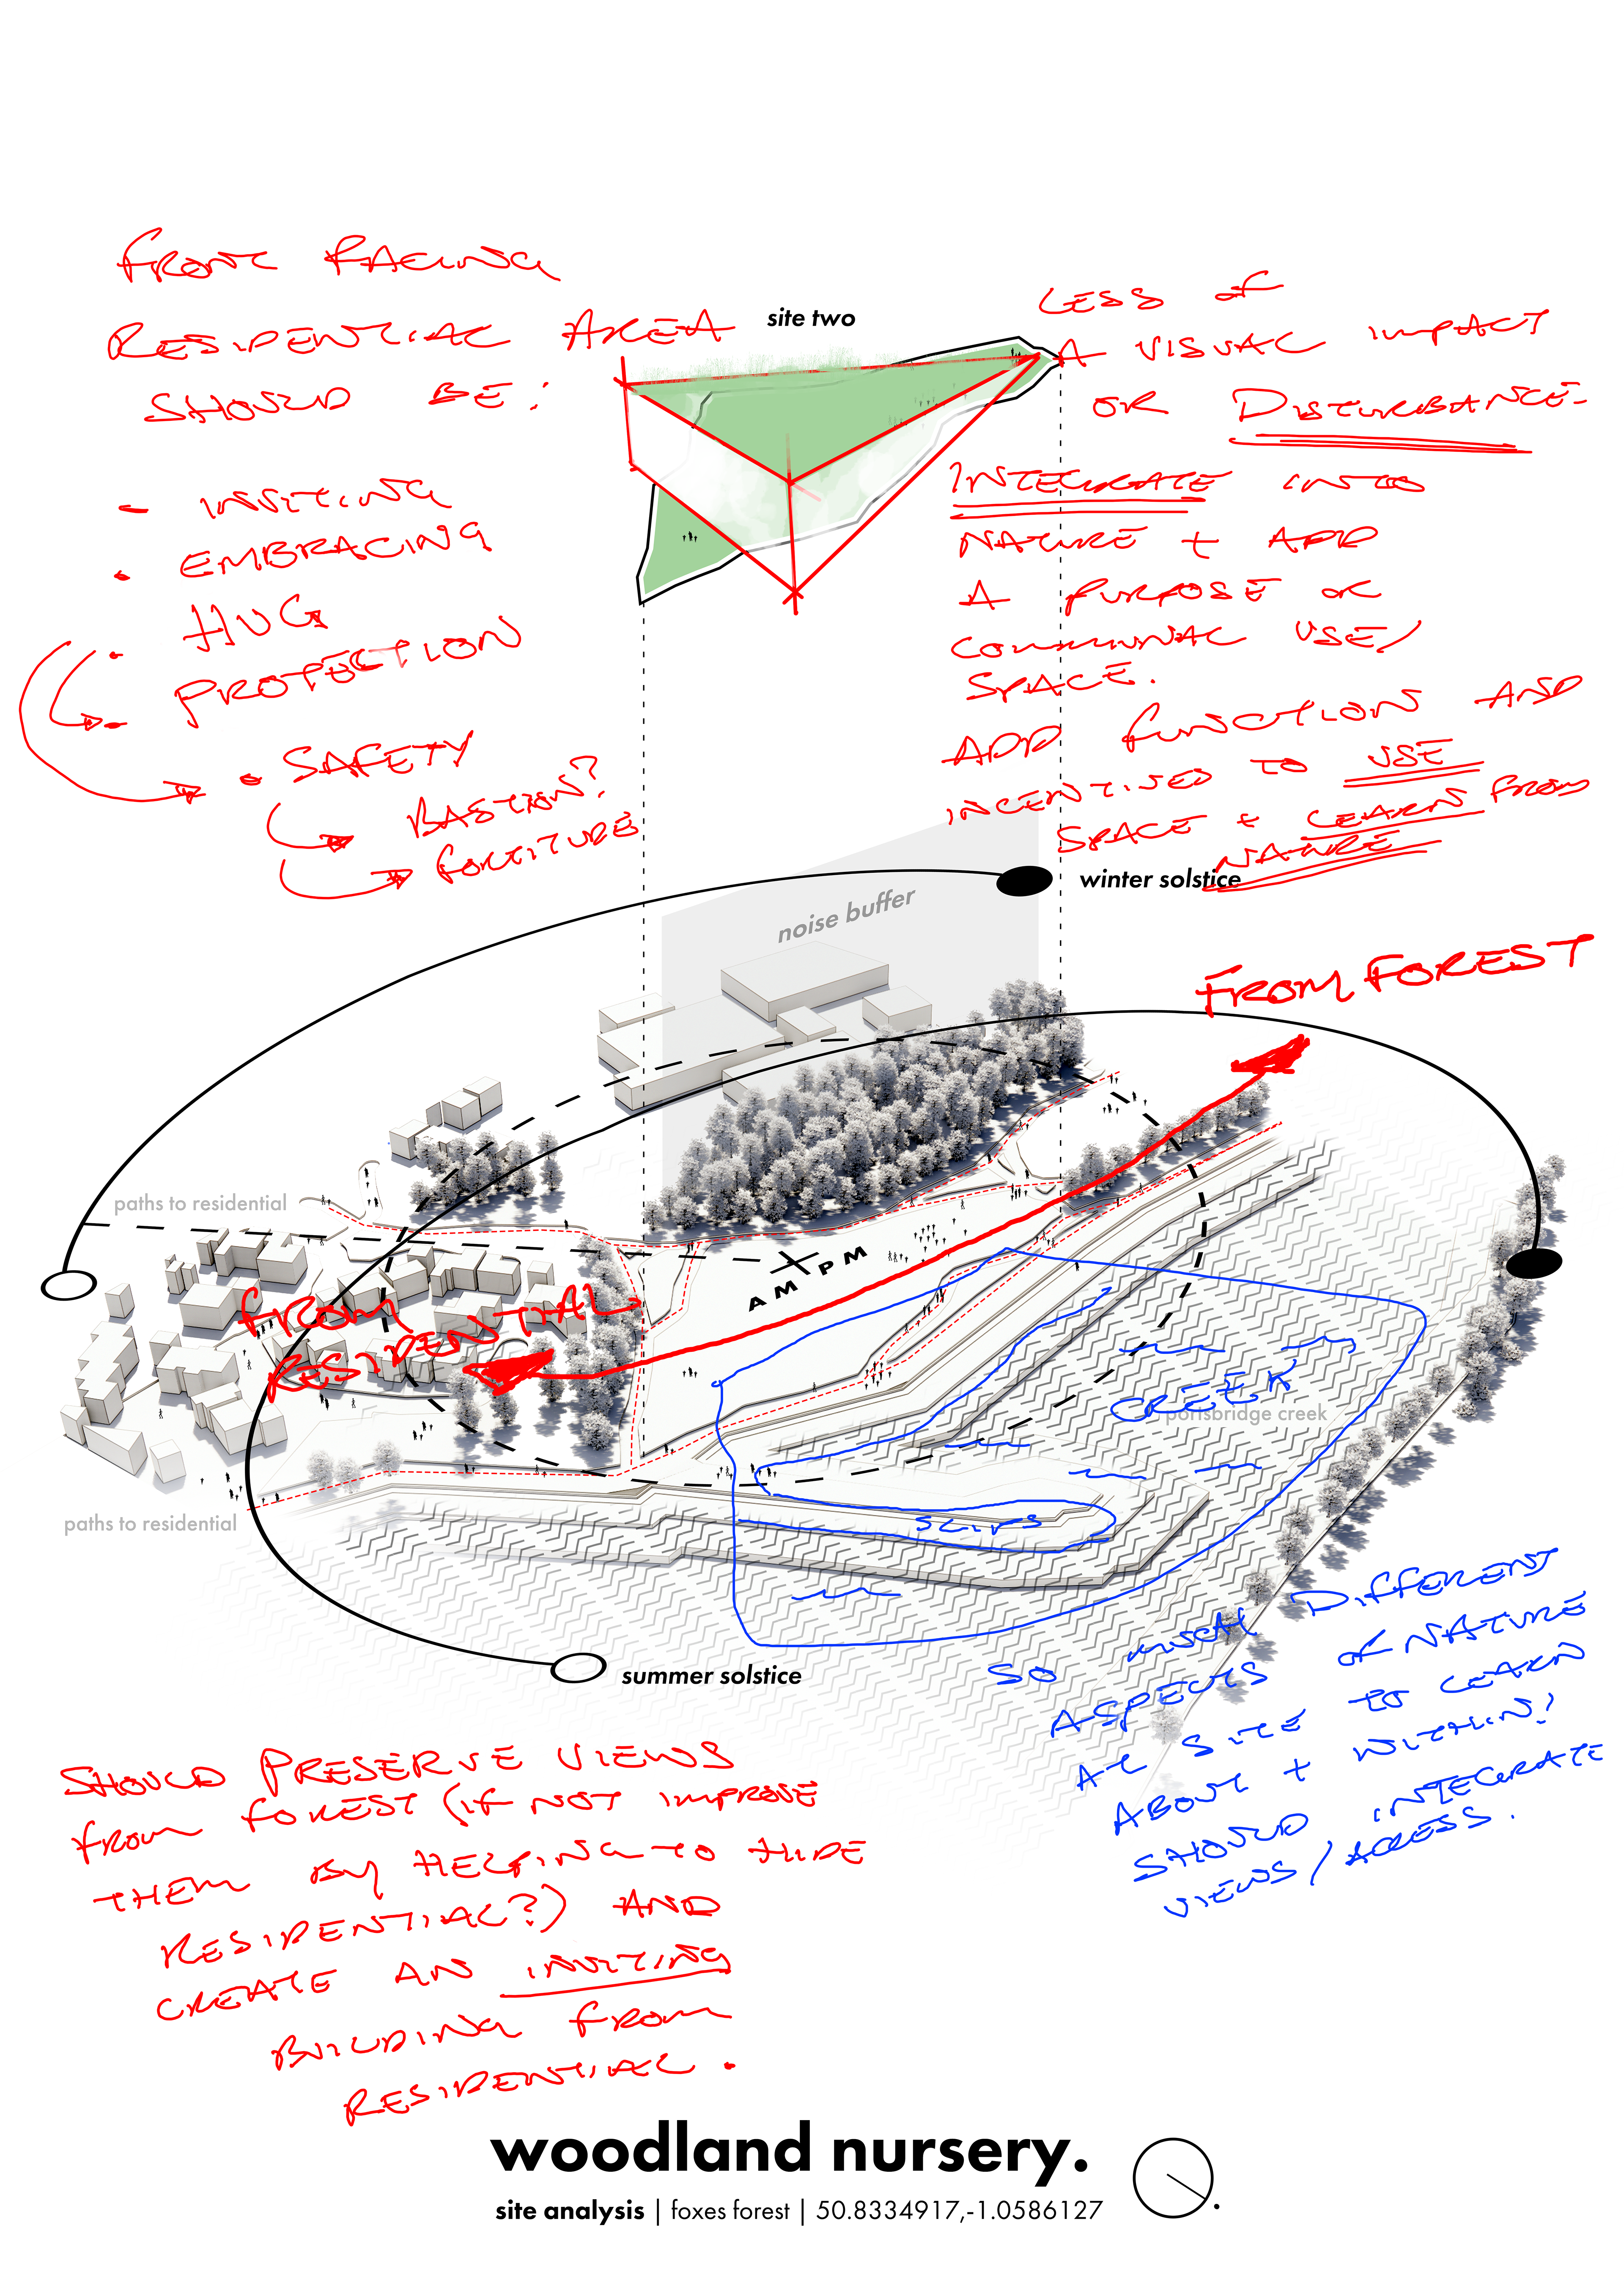 FRONT FACING
RESIDENTIAL AREA
SHOULD BE:
- INVITING
• EMBRACING
• HUG
- PROTECTION
• SAFETY
BASTION?
FORTITUDE
site two
LESS OF
A VISUAL IMPACT
OR DISTURBANCE.
INTEGRATE INTO
NATURE + ADD
A PURPOSE OR
COMMUNAL USE/
SPACE.
ADD FUNCTION AND
INCENTIVISED TO USE
SPACE + LEARN FROM
NATURE
winter solstice
noise buffer
FROM FOREST
paths to residential
AM PM
FROM
RESIDENTIAL
CREEK
portsbridge creek
paths to residential
summer solstice
SO MUCH DIFFERENT
ASPECTS OF NATURE
AT SITE TO LEARN
ABOUT + WITHIN!
SHOULD INTEGRATE
VIEWS/ACCESS.
SHOULD PRESERVE VIEWS
FROM FOREST (IF NOT IMPROVE
THEM BY HELPING TO HIDE
RESIDENTIAL?) AND
CREATE AN INVITING
BUILDING FROM
RESIDENTIAL.
woodland nursery.
site analysis | foxes forest | 50.8334917,-1.0586127